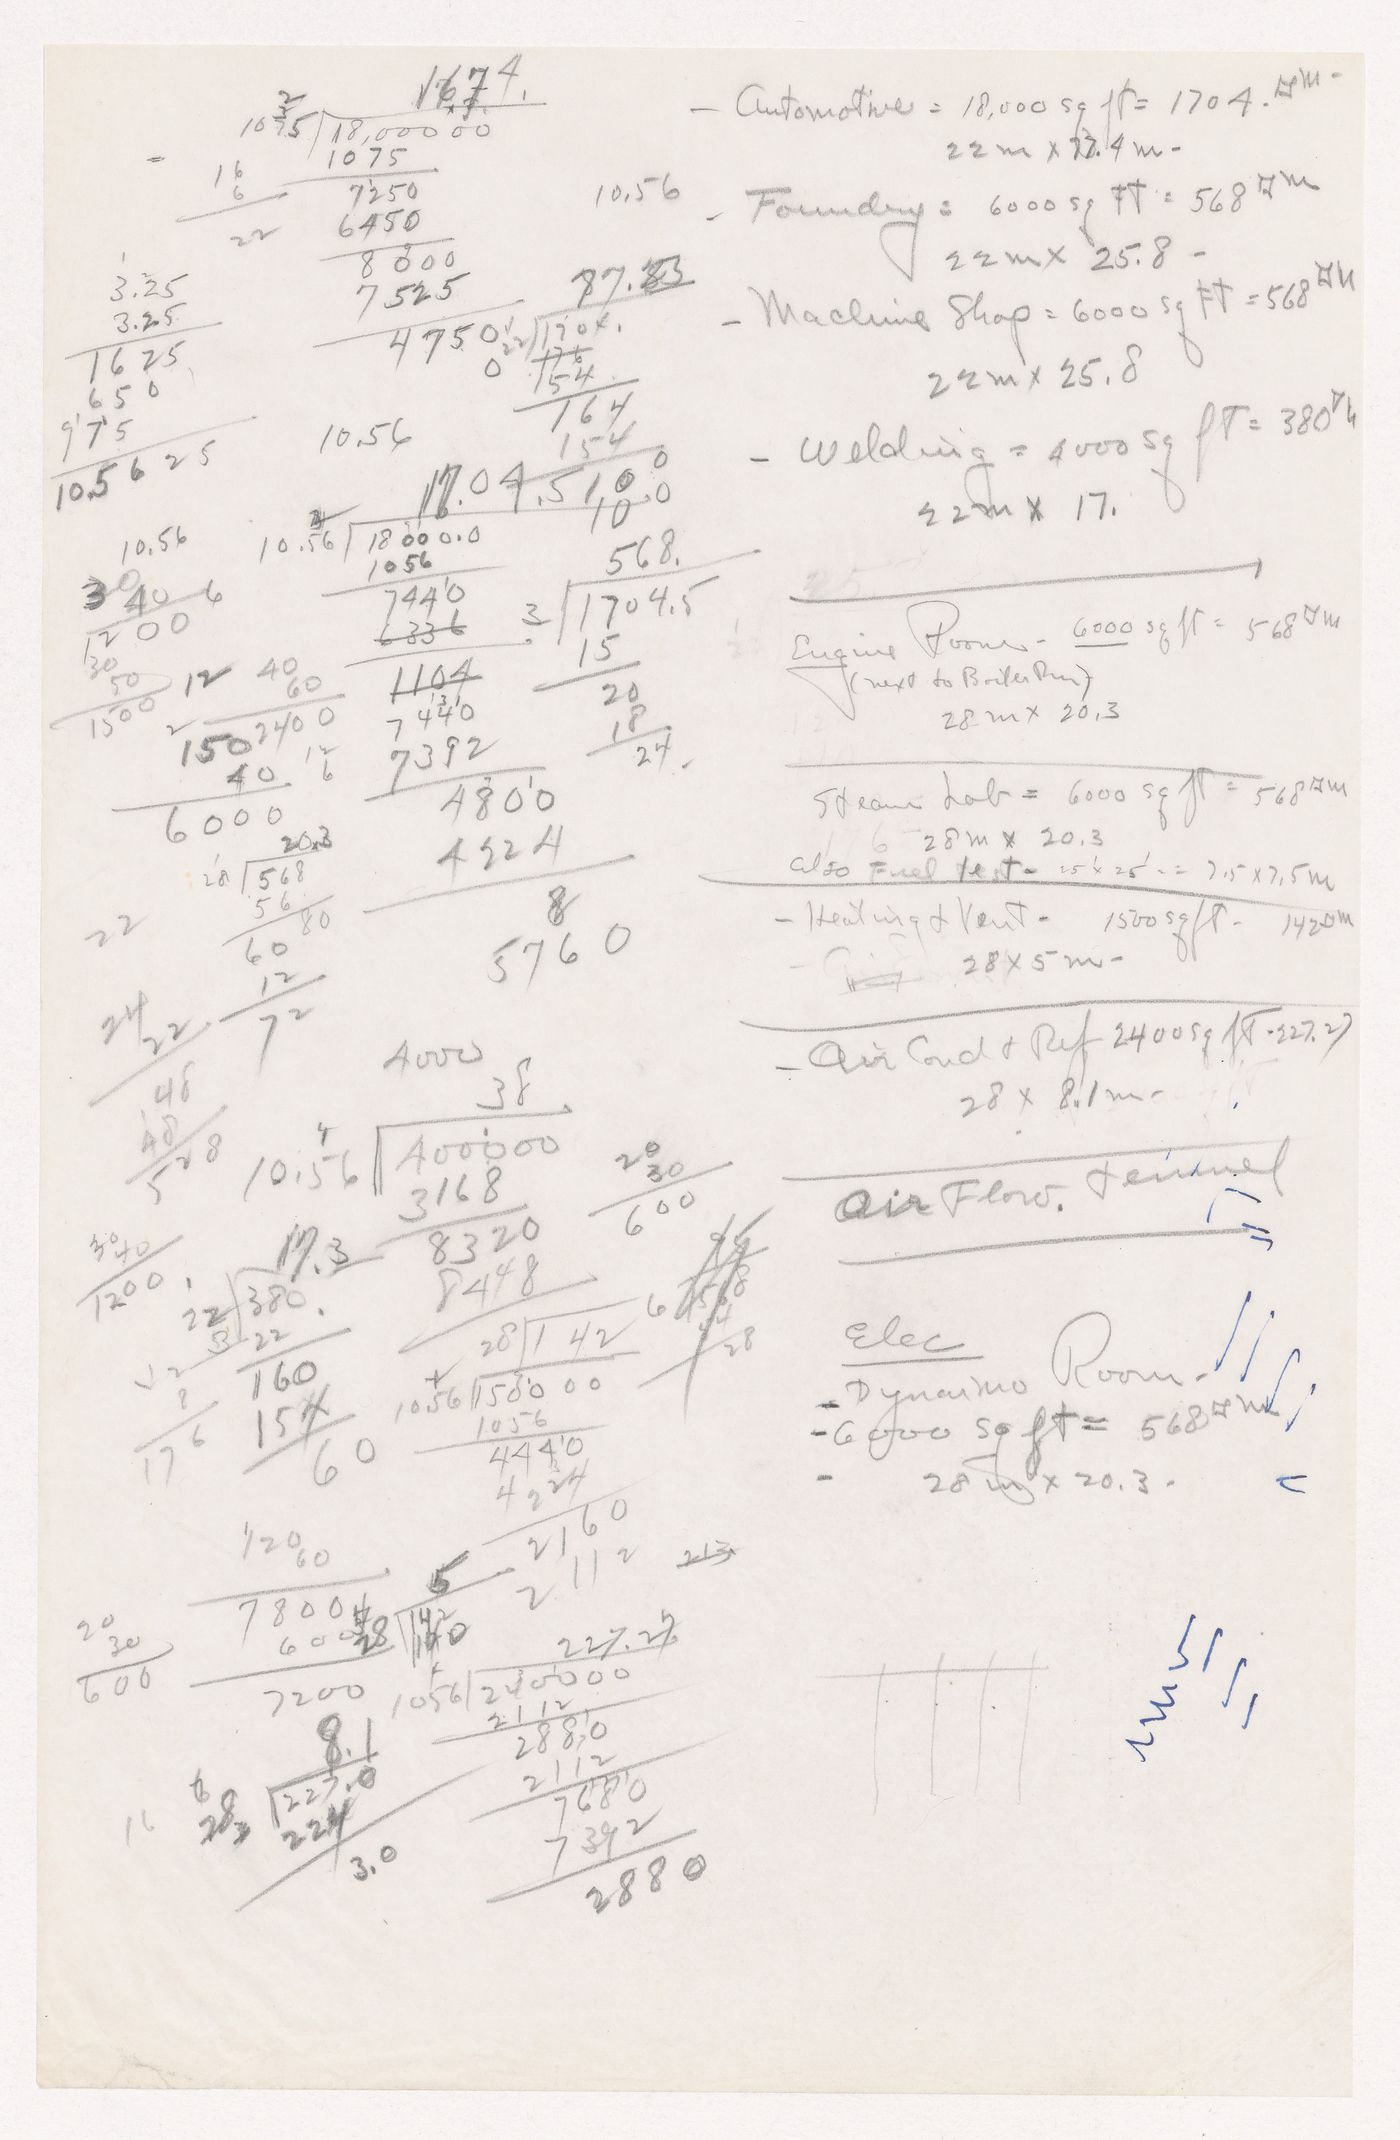 1674.
1075 18,000000
1075
16
6
22
7250
6450
8000
7525
47500
3.25
3.25
1625
650
975
10.5625
10.56
87.23
22 1704.
176
154
164
154
100
10.56
1704.5
10.56 18000.0
1056
7440
6336
1104
7440
7392
4800
4224
8
5760
568.
3 1704.5
15
20
18
24
10.56
30
40
1200
30
50
1500
12
40
60
2400
150
40
6000
12
6
20.3
28 568
56
60 80
12
72
22
24
22
48
48
528
4000
38
10.56 400000
3168
8320
8448
20
30
600
30
40
1200
17.3
22 380.
22
160
154
60
8
176
28 142
1056 150000
1056
4440
4224
2160
2112
213
120
60
7800
600
7200
5
28 142
140
20
30
600
227.27
1056 240000
2112
2880
2112
7680
7392
2880
8.1
28 227.0
224
3.0
16
- Automotive = 18,000 sq ft = 1704. m -
22 m x 77.4 m -
- Foundry = 6000 sq ft = 568 m
22 m x 25.8 -
- Machine Shop = 6000 sq ft = 568 m
22 m x 25.8
- Welding = 4000 sq ft = 380
22 m x 17.
Engine Room - 6000 sq ft = 568 m
(next to Boiler Rm)
28 m x 20.3
Steam Lab = 6000 sq ft = 568 m
28 m x 20.3
also Fuel test - 25' x 25' = 7.5 x 7.5 m
- Heating & Vent - 1500 sq ft - 142 m
28 x 5 m -
- Air Cond & Ref 2400 sq ft - 227.27
28 x 8.1 m -
Air Flow. tunnel
Elec
- Dynaimo Room -
- 6000 sq ft = 568 m
- 28 m x 20.3 -